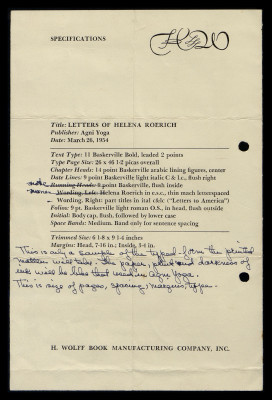 SPECIFICATIONS
HW
Title: LETTERS OF HELENA ROERICH
Publisher: Agni Yoga
Date: March 26, 1954
Text Type: 11 Baskerville Bold, leaded 2 points
Type Page Size: 26 x 46 1-2 picas overall
Chapter Heads: 14 point Baskerville arabic lining figures, center
Date Lines: 9 point Baskerville light italic C & l.c., flush right
Running Heads: 8 point Baskerville, flush inside
Wording. Left: Helena Roerich in c.s.c., thin mach letterspaced
Wording. Right: part titles in ital c&lc ("Letters to America")
Folios: 9 pt. Baskerville light roman O.S., in head, flush outside
Initial: Body cap, flush, followed by lower case
Space Bands: Medium. Band only for sentence spacing
Trimmed Size: 6 1-8 x 9 1-4 inches
Margins: Head, 7-16 in.; Inside, 3-4 in.
This is only a sample of the typed form the printed
matter will take. The paper, print and darkness of
ink will be like that used in Agni Yoga.
This is size of pages, spacing, margins, type.
H. WOLFF BOOK MANUFACTURING COMPANY, INC.